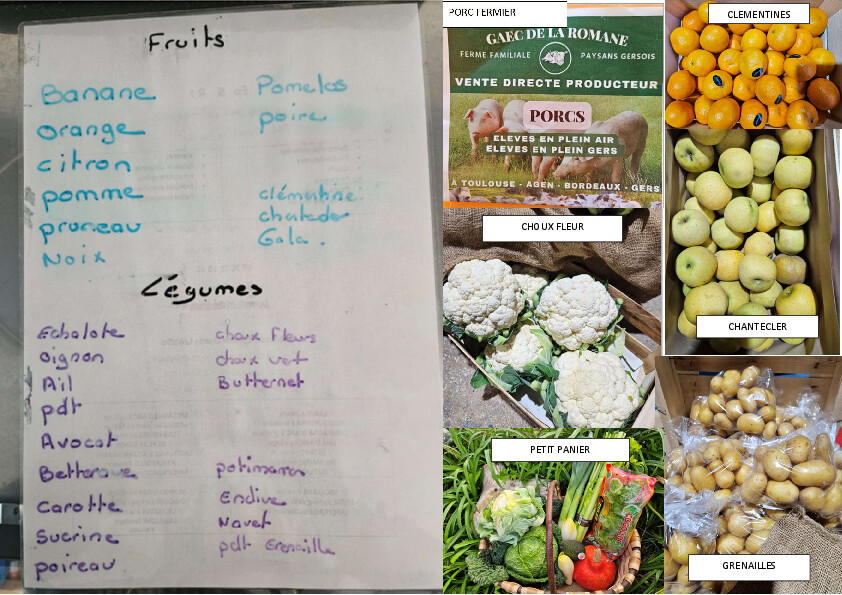 Fruits
Banane
orange
citron
pomme
pruneau
Noix
Pomelos
poire
clémentine
Gala.
Légumes
Echalote
oignon
Ail
pdt
Avocat
Betterave
Carotte
Sucrine
poireau
choux fleurs
choux vert
Butternet
potimaron
Endive
Navet
pdt Grenaille
PORC FERMIER
GAEC DE LA ROMANE
FERME FAMILIALE PAYSANS GERSOIS
VENTE DIRECTE PRODUCTEUR
PORCS
ELEVES EN PLEIN AIR
ELEVES EN PLEIN GERS
A TOULOUSE - AGEN - BORDEAUX - GERS
CHOUX FLEUR
PETIT PANIER
CLEMENTINES
CHANTECLER
GRENAILLES